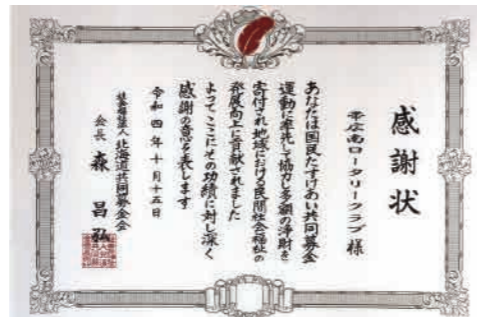 感謝状
帯広南ロータリークラブ 様
あなたは国民たすけあい共同募金
運動に率先して協力し多額の浄財を
寄付され地域における民間社会福祉の
発展向上に貢献されました
よってここにその功績に対し深く
感謝の意を表します
令和四年十月十五日
社会福祉法人 北海道共同募金会
会長 森 昌弘